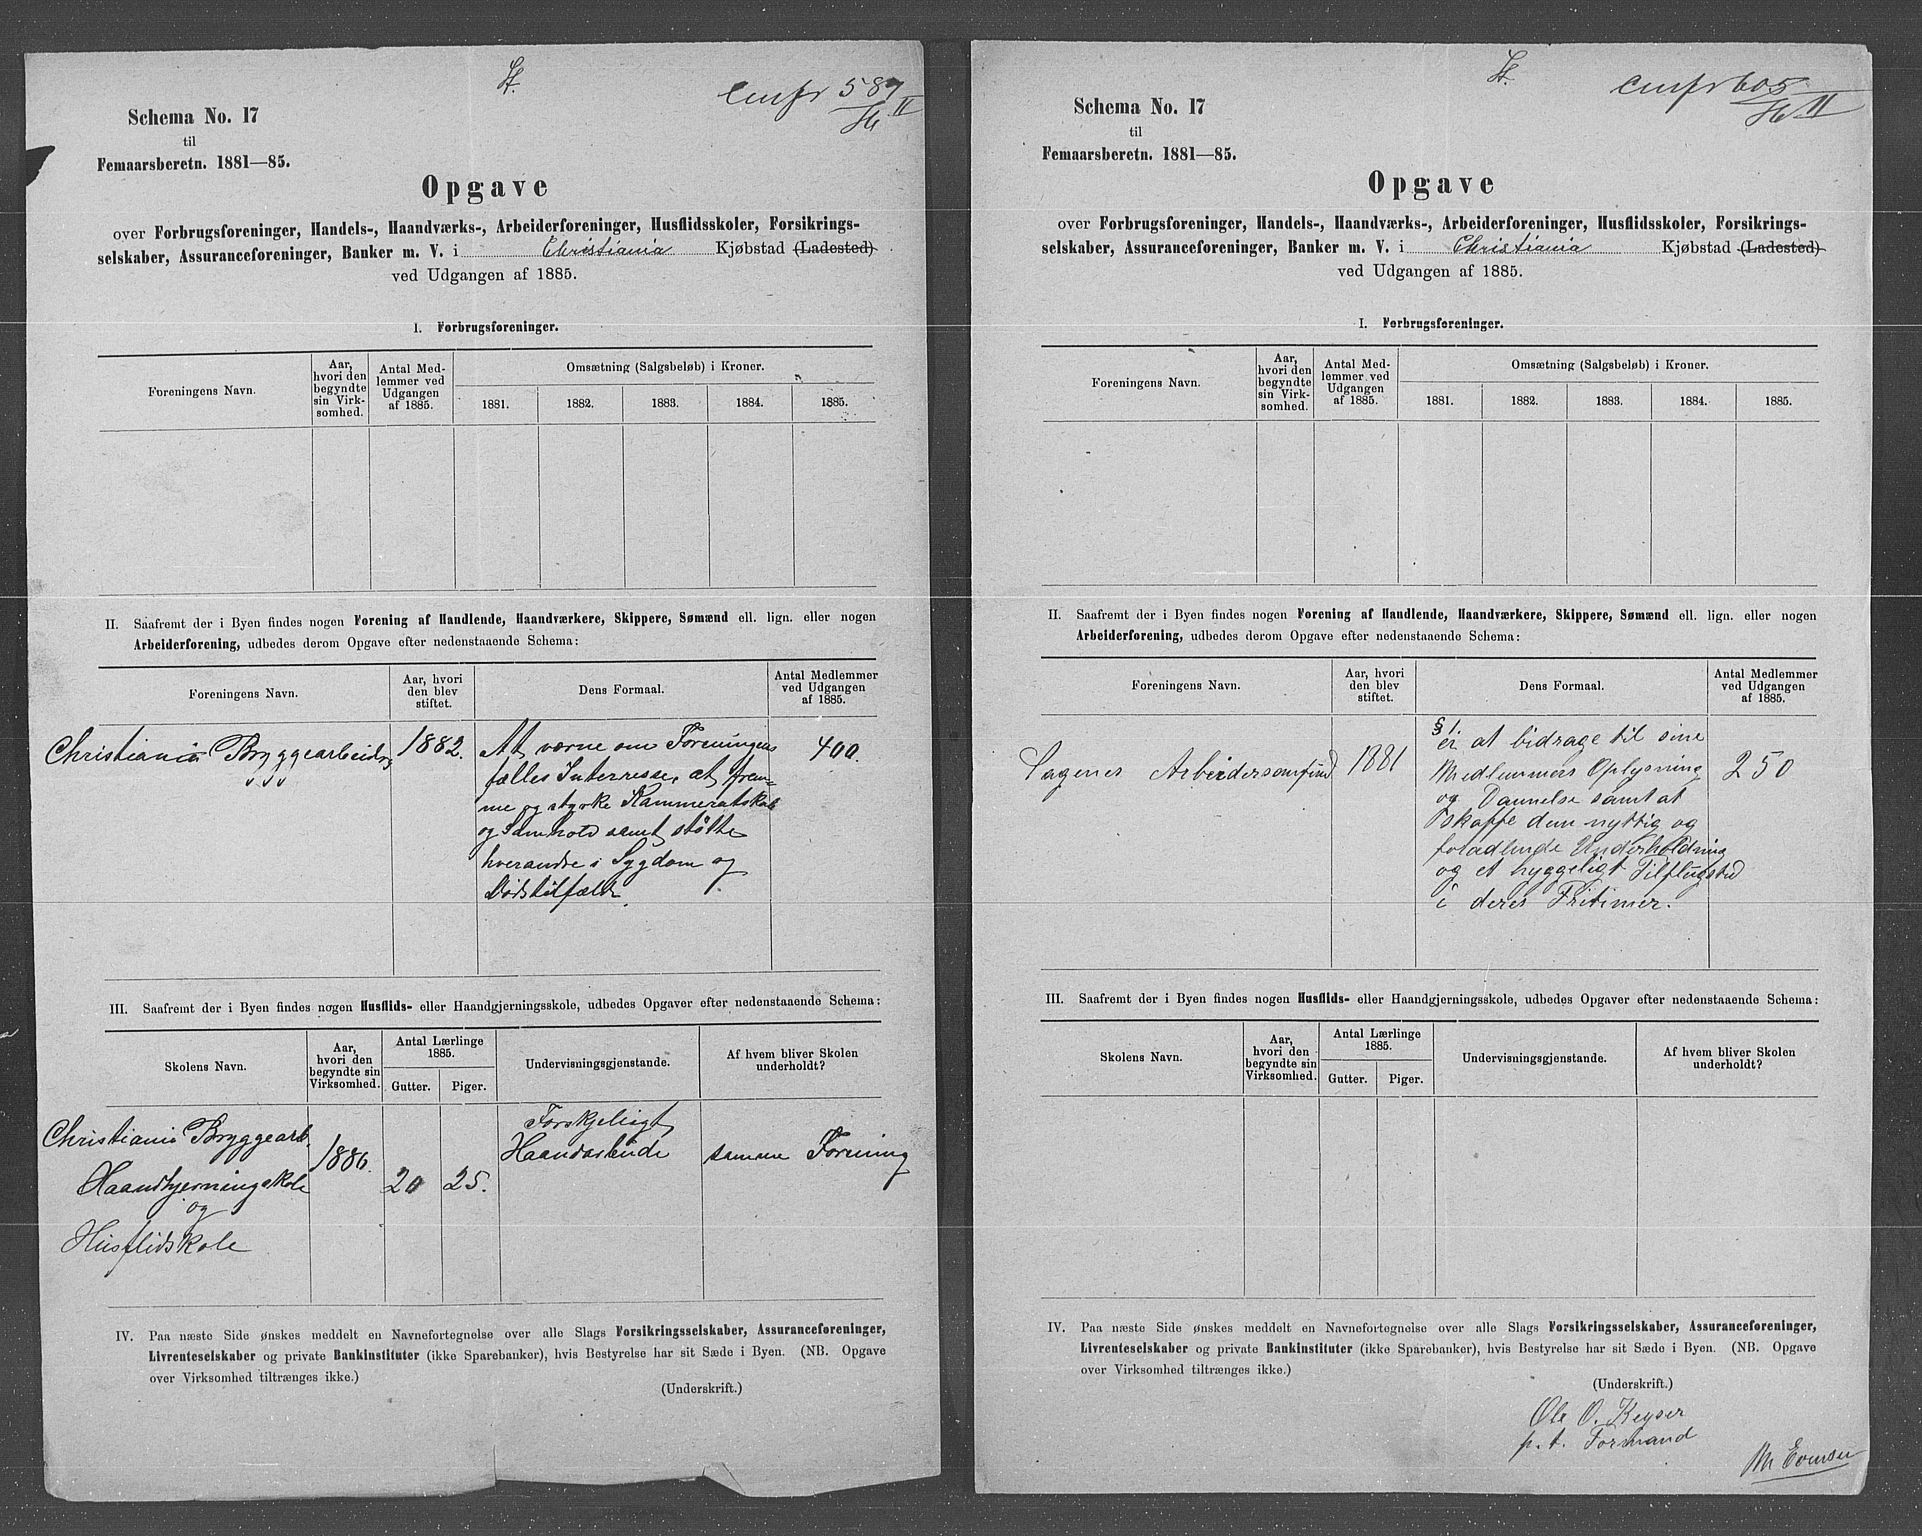 St.
Cmfr 587
II
Schema No. 17
til
Femaarsberetn. 1881—85.
Opgave
over Forbrugsforeninger, Handels-, Haandværks-, Arbeiderforeninger, Husflidsskoler, Forsikrings-
selskaber, Assuranceforeninger, Banker m. V. i Christiania Kjøbstad (Ladested)
ved Udgangen af 1885.
I. Forbrugsforeninger.
Foreningens Navn.
Aar,
hvori den
begyndte
sin Virk-
somhed.
Antal Med-
lemmer ved
Udgangen
af 1885.
Omsætning (Salgsbeløb) i Kroner.
1881. 1882. 1883. 1884. 1885.
II. Saafremt der i Byen findes nogen Forening af Handlende, Haandværkere, Skippere, Sømænd ell. lign. eller nogen
Arbeiderforening, udbedes derom Opgave efter nedenstaaende Schema:
Foreningens Navn.
Aar, hvori
den blev
stiftet.
Dens Formaal.
Antal Medlemmer
ved Udgangen
af 1885.
Christiania Bryggearbeider
1882.
At værne om Foreningens
fælles Interesse, at frem-
me og styrke Kammeratskab
og Samhold samt støtte
hverandre i Sygdom og
Dødstilfælde.
400.
III. Saafremt der i Byen findes nogen Husflids- eller Haandgjerningsskole, udbedes Opgaver efter nedenstaaende Schema:
Skolens Navn.
Aar,
hvori den
begyndte sin
Virksomhed.
Antal Lærlinge
1885.
Gutter. Piger.
Undervisningsgjenstande.
Af hvem bliver Skolen
underholdt?
Christiania Bryggearb.
Haandgjerningskole
og
Husflidskole
1886.
20
25.
Forskjeligt
Haandarbeide
samme Forening
IV. Paa næste Side ønskes meddelt en Navnefortegnelse over alle Slags Forsikringsselskaber, Assuranceforeninger,
Livrenteselskaber og private Bankinstituter (ikke Sparebanker), hvis Bestyrelse har sit Sæde i Byen. (NB. Opgave
over Virksomhed tiltrænges ikke.)
(Underskrift.)
St.
Cmfr 605
II
Schema No. 17
til
Femaarsberetn. 1881—85.
Opgave
over Forbrugsforeninger, Handels-, Haandværks-, Arbeiderforeninger, Husflidsskoler, Forsikrings-
selskaber, Assuranceforeninger, Banker m. V. i Christiania Kjøbstad (Ladested)
ved Udgangen af 1885.
I. Forbrugsforeninger.
Foreningens Navn.
Aar,
hvori den
begyndte
sin Virk-
somhed.
Antal Med-
lemmer ved
Udgangen
af 1885.
Omsætning (Salgsbeløb) i Kroner.
1881. 1882. 1883. 1884. 1885.
II. Saafremt der i Byen findes nogen Forening af Handlende, Haandværkere, Skippere, Sømænd ell. lign. eller nogen
Arbeiderforening, udbedes derom Opgave efter nedenstaaende Schema:
Foreningens Navn.
Aar, hvori
den blev
stiftet.
Dens Formaal.
Antal Medlemmer
ved Udgangen
af 1885.
Sagenes Arbeidersamfund
1881
§ 1
er at bidrage til sine
Medlemmers Oplysning
og Dannelse samt at
skaffe dem nyttig og
forædlende Underholdning
og et hyggeligt Tilflugsted
i deres Fritimer.
250
III. Saafremt der i Byen findes nogen Husflids- eller Haandgjerningsskole, udbedes Opgaver efter nedenstaaende Schema:
Skolens Navn.
Aar,
hvori den
begyndte sin
Virksomhed.
Antal Lærlinge
1885.
Gutter. Piger.
Undervisningsgjenstande.
Af hvem bliver Skolen
underholdt?
IV. Paa næste Side ønskes meddelt en Navnefortegnelse over alle Slags Forsikringsselskaber, Assuranceforeninger,
Livrenteselskaber og private Bankinstituter (ikke Sparebanker), hvis Bestyrelse har sit Sæde i Byen. (NB. Opgave
over Virksomhed tiltrænges ikke.)
(Underskrift.)
Ole O. Keyser
p. t. Formand